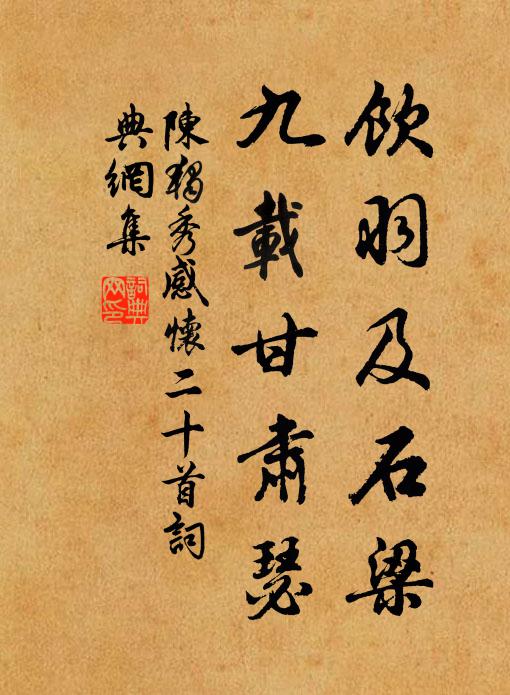 飲羽及石梁
九載甘肅瑟
陳獨秀感懷二十首詞
典網集
詞典網印